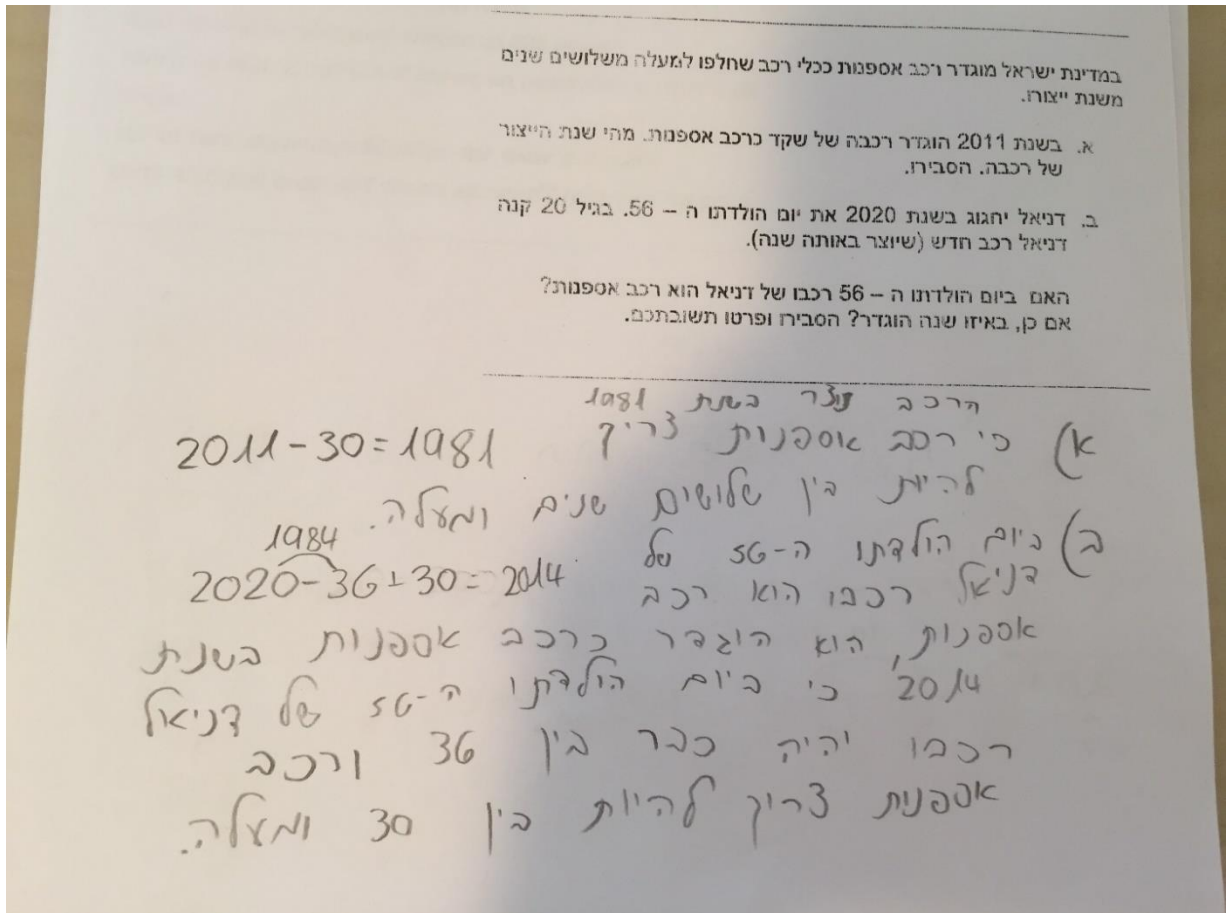 במדינת ישראל מוגדר רכב אספנות ככלי רכב שחלפו למעלה משלושים שנים
משנת ייצורו.
א. בשנת 2011 הוגדר רכבה של שקד כרכב אספנות. מהי שנת הייצור
של רכבה. הסבירו.
ב. דניאל יחגוג בשנת 2020 את יום הולדתו ה – 56. בגיל 20 קנה
דניאל רכב חדש (שיוצר באותה שנה).
האם ביום הולדתו ה – 56 רכבו של דניאל הוא רכב אספנות?
אם כן, באיזו שנה הוגדר? הסבירו ופרטו תשובתכם.
הרכב נוצר בשנת 1981
א) כי רכב אספנות צריך 2011-30=1981
להיות בין שלושים שנים ומעלה.
1984
ב) ביום הולדתו ה-56 של
דניאל רכבו הוא רכב 2020-36+30=2014
אספנות, הוא הוגדר כרכב אספנות בשנת
2014 כי ביום הולדתו ה-56 של דניאל
רכבו יהיה כבר בין 36 ורכב
אספנות צריך להיות בין 30 ומעלה.